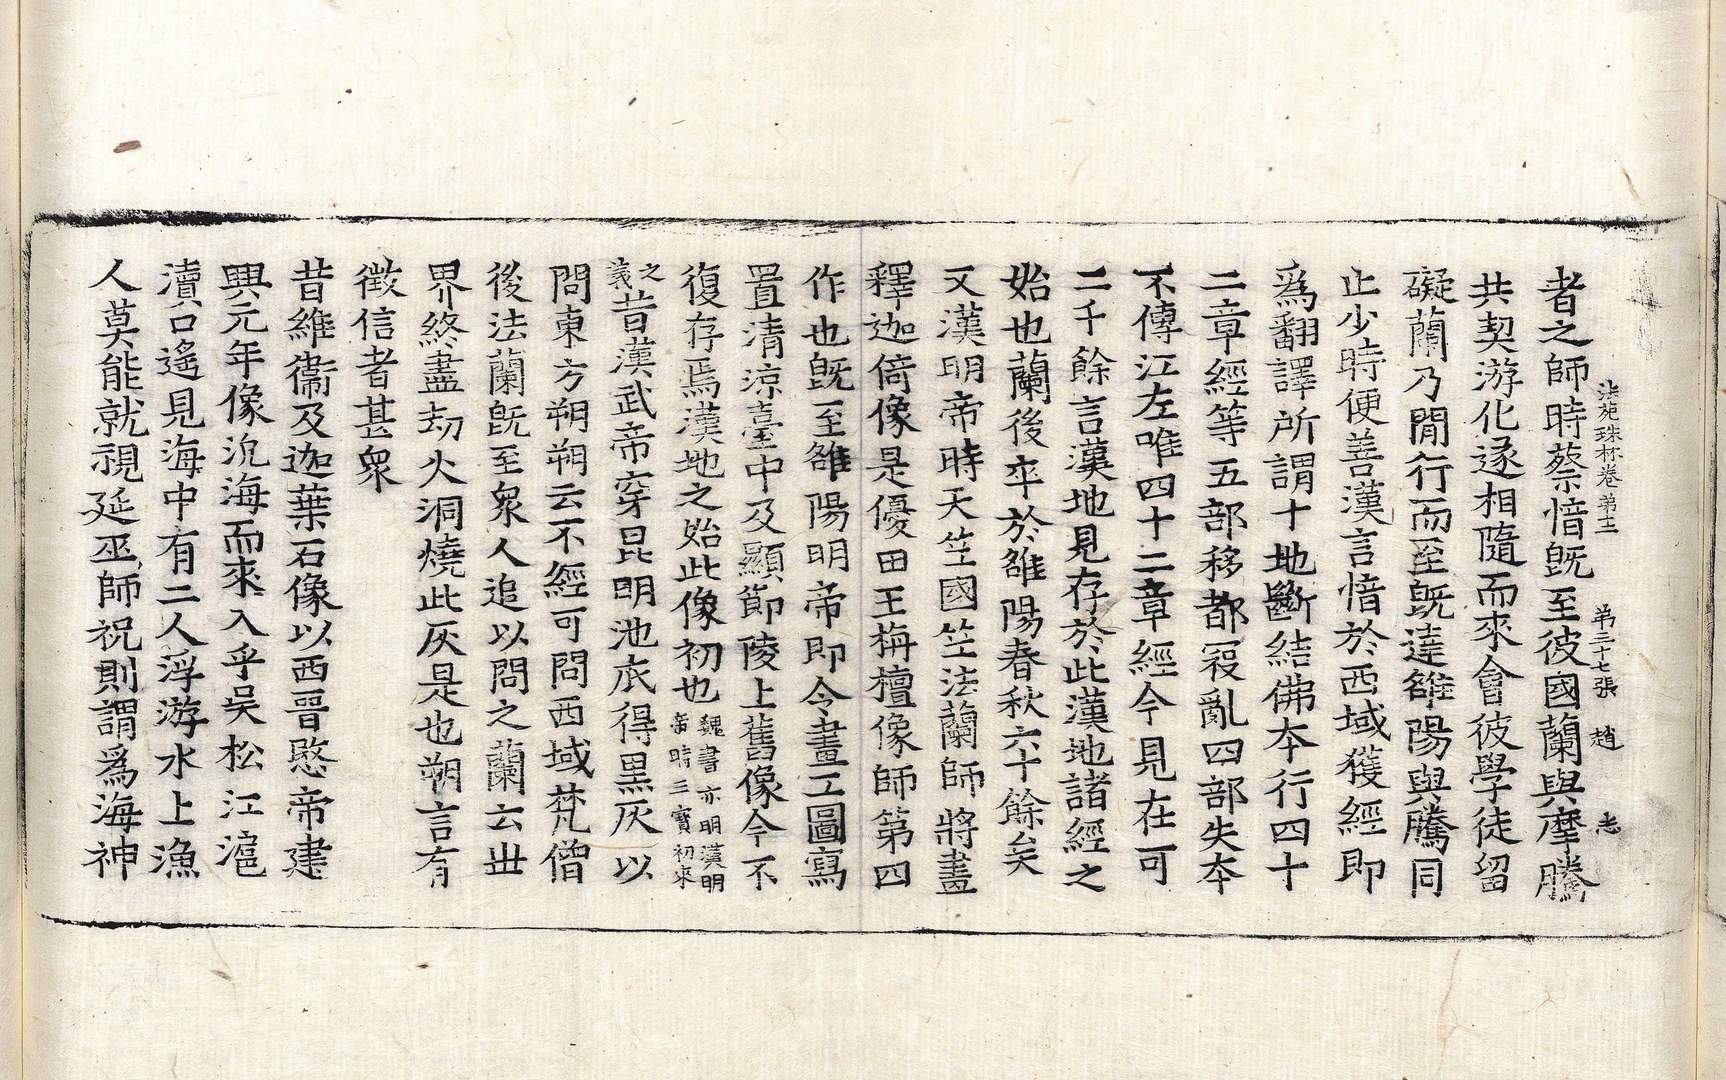 法苑珠林卷第十二　第三十七張　趙　志
者之師時蔡愔旣至彼國蘭與摩騰
共契游化遂相隨而來會彼學徒留
礙蘭乃間行而至旣達雒陽與騰同
止少時便善漢言愔於西域獲經即
爲翻譯所謂十地斷結佛本行四十
二章經等五部移都寇亂四部失本
不傳江左唯四十二章經今見在可
二千餘言漢地見存於此漢地諸經之
始也蘭後卒於雒陽春秋六十餘矣
又漢明帝時天竺國竺法蘭師將畫
釋迦倚像是優田王栴檀像師第四
作也旣至雒陽明帝即令畫工圖寫
置清涼臺中及顯節陵上舊像今不
復存焉漢地之始此像初也魏書亦明漢明帝時三寶初來
之義昔漢武帝穿昆明池底得黒灰以
問東方朔朔云不經可問西域梵僧
後法蘭旣至衆人追以問之蘭云丗
界終盡劫火洞燒此灰是也朔言有
徵信者甚衆
昔維衞及迦葉石像以西晉愍帝建
興元年像汎海而來入乎吳松江滬
瀆口遙見海中有二人浮游水上漁
人莫能就視延巫師祝則謂爲海神